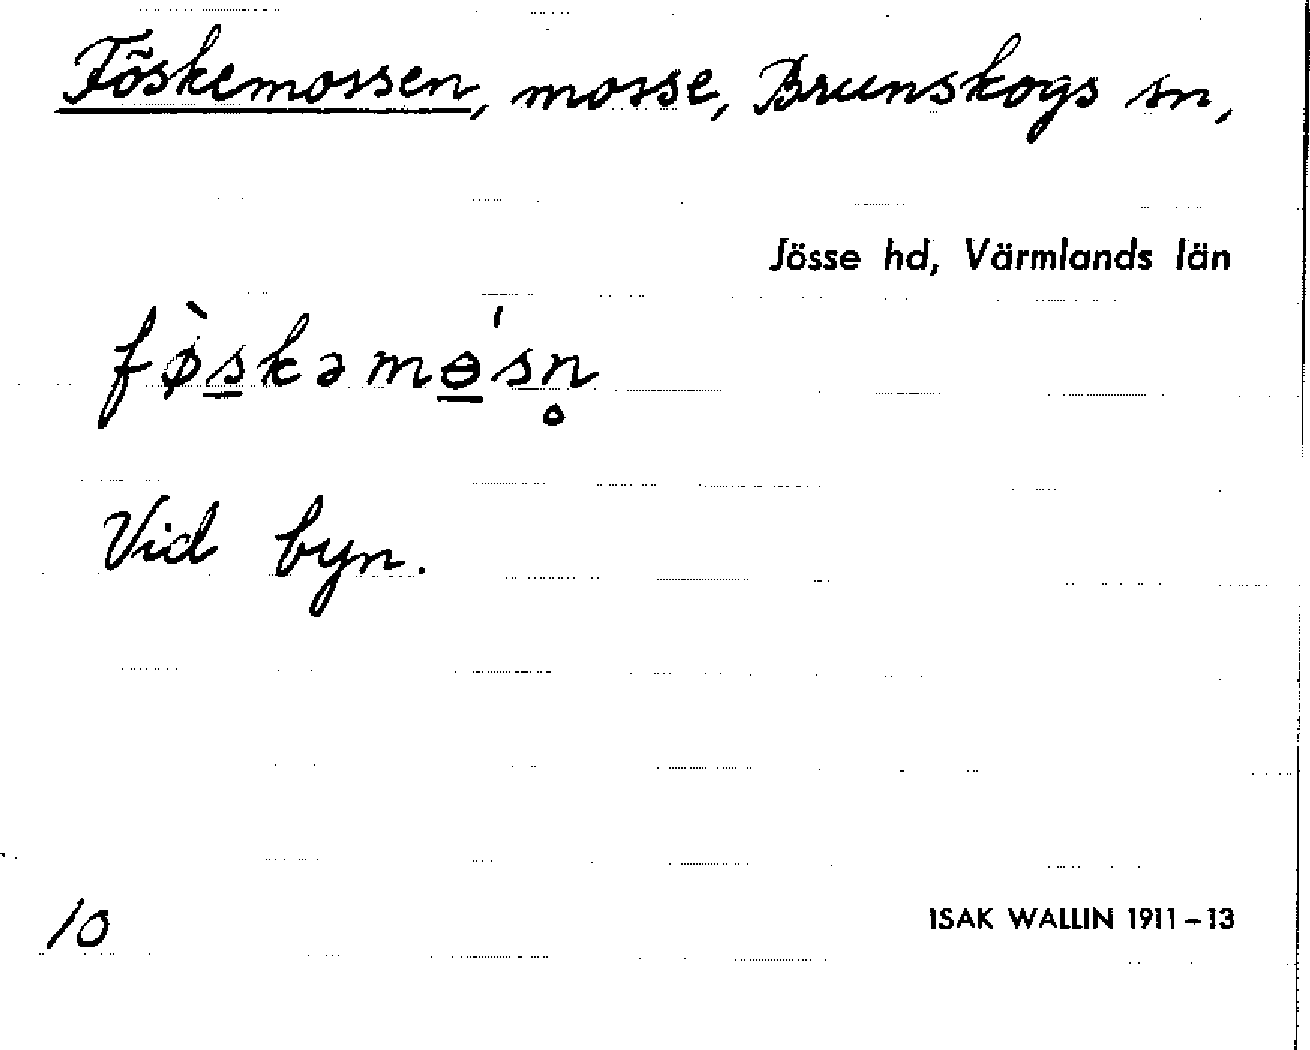 Föskemossen, mosse, Brunskogs sn,
Jösse hd, Värmlands län
fø̀s̲kəmɵ̲́sn̥
Vid byn.
10
ISAK WALLIN 1911–13